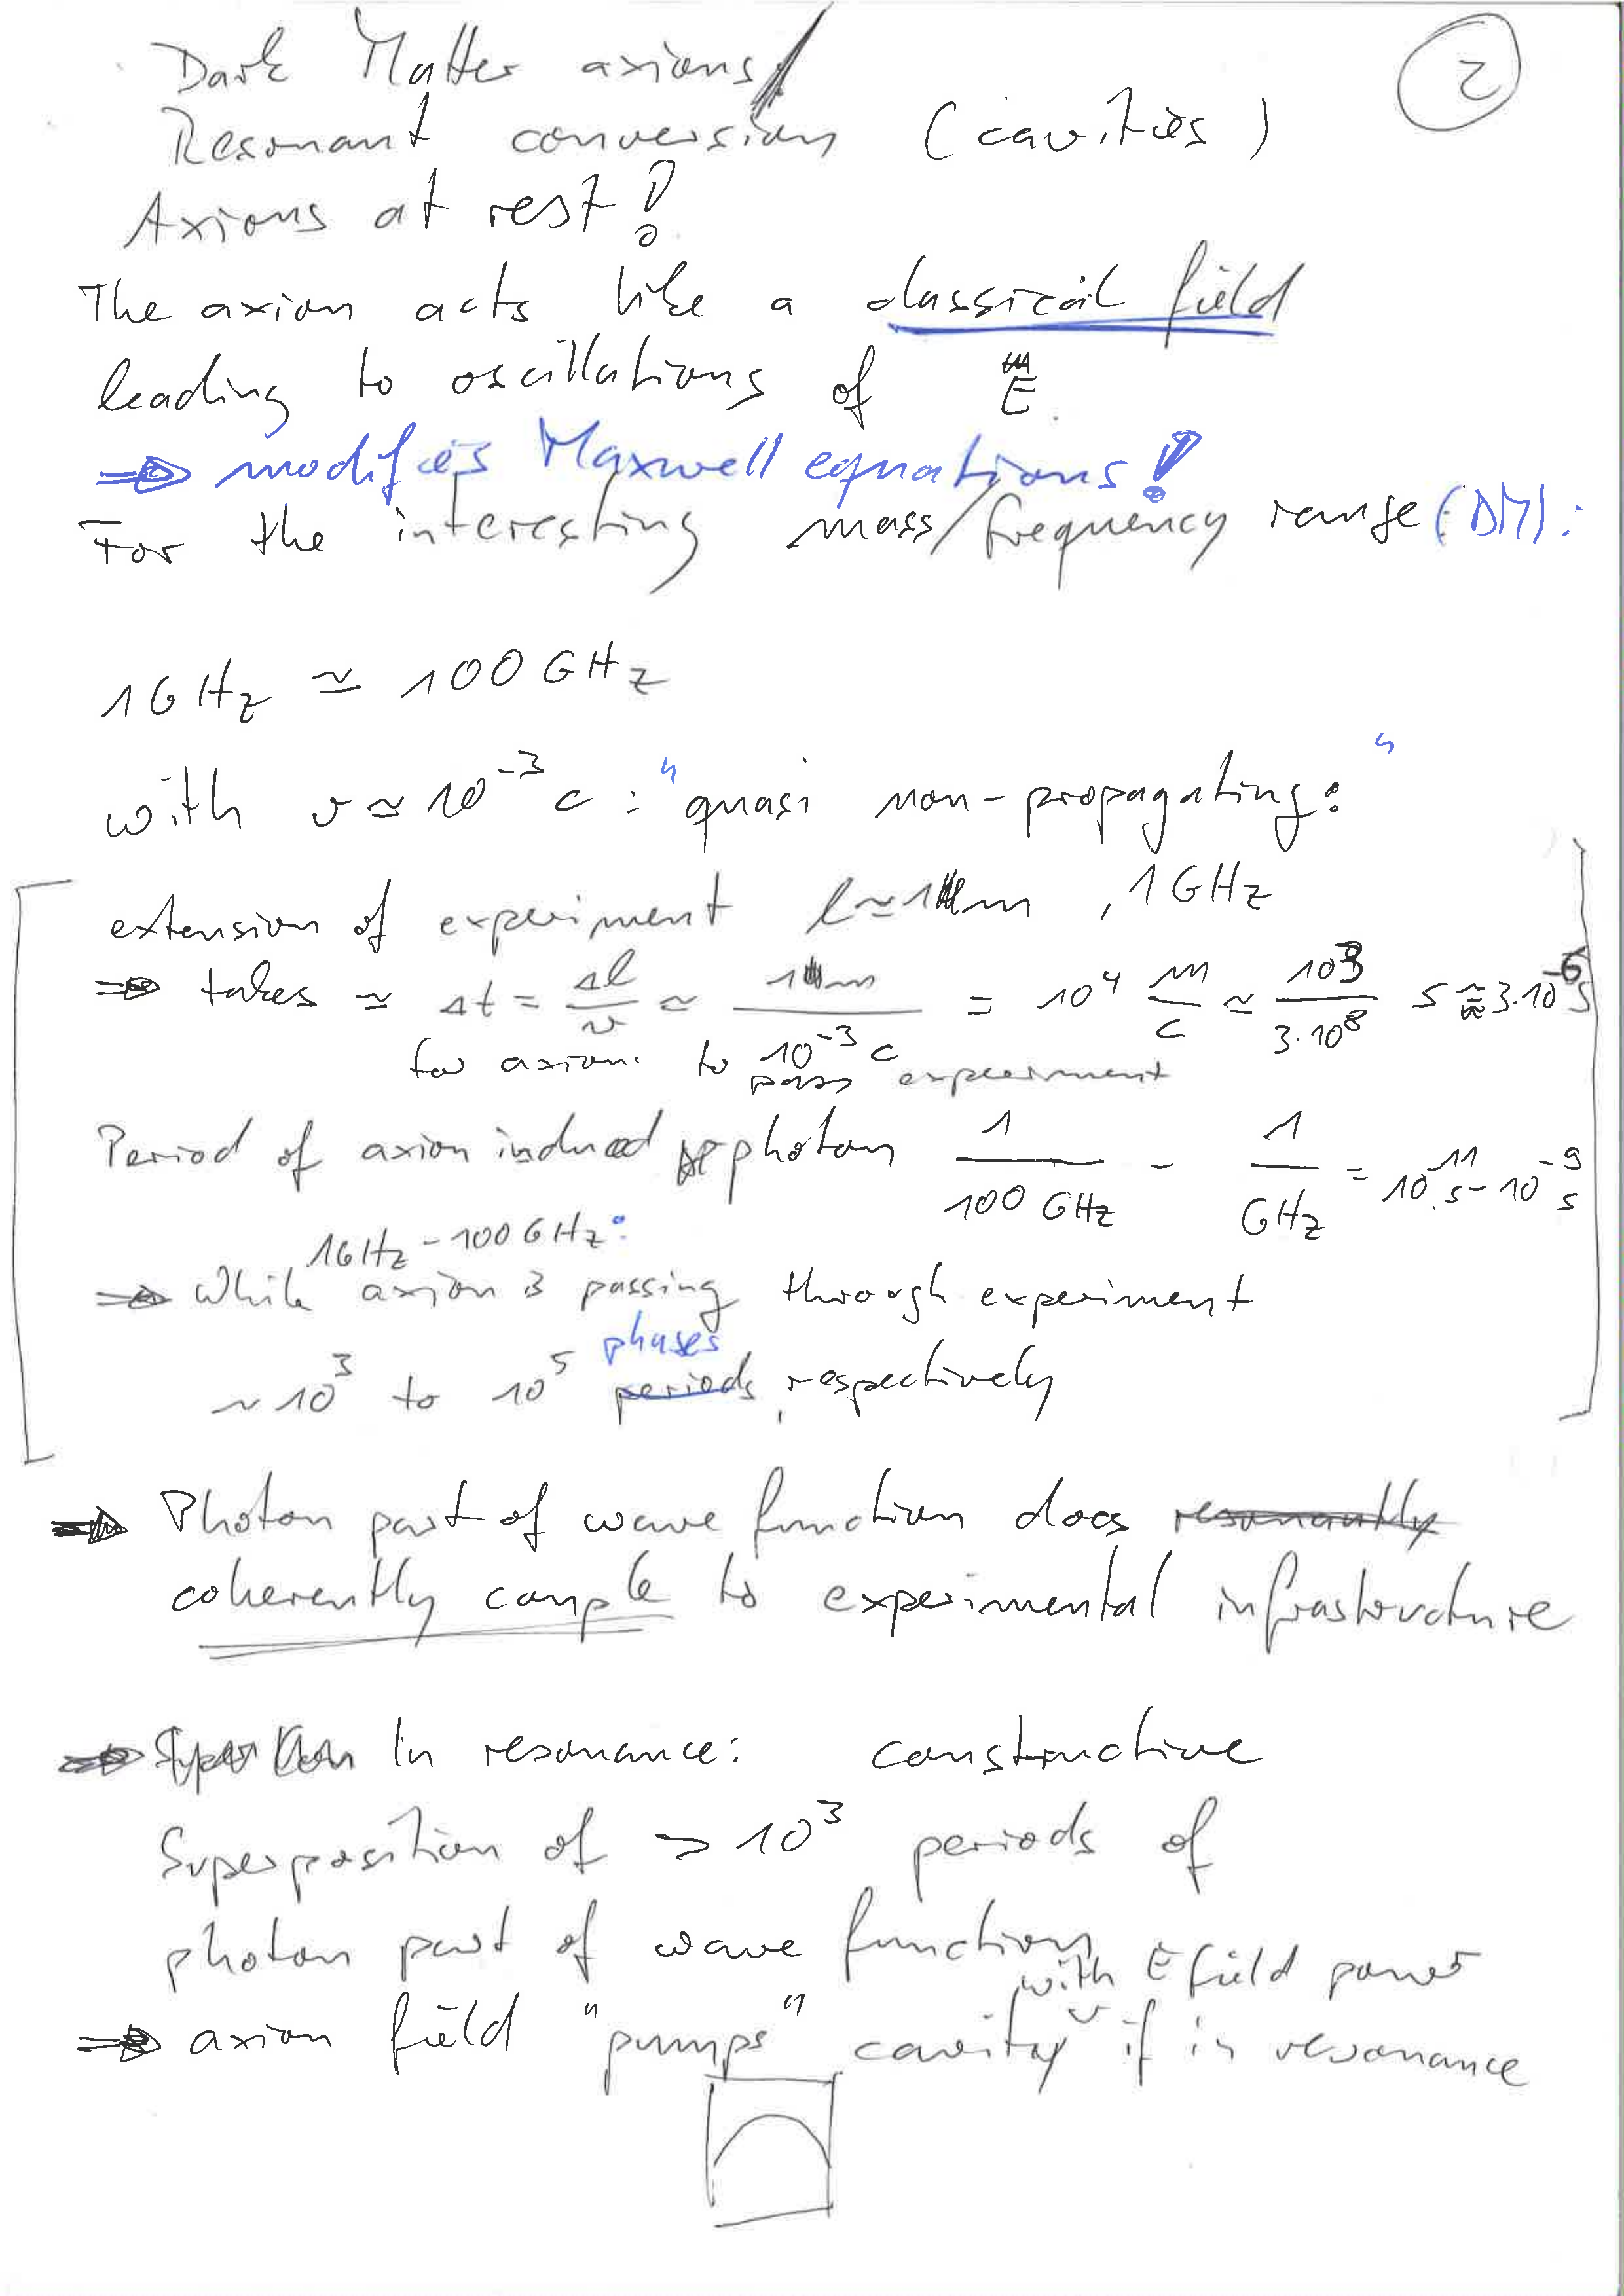 Dark Matter axions
2
Resonant conversion (cavities)
Axions at rest!
The axion acts like a classical field
leading to oscillations of E
⇒ modifies Maxwell equations!
For the interesting mass/frequency range (DM):
1GHz ≃ 100 GHz
with v ≃ 10^-3 c : "quasi non-propagating:"
extension of experiment l ≃ 1 m , 1 GHz
⇒ takes ≃ Δt = Δl/v ≃ 1 m / 10^-3 c = 10^4 m/c ≃ 10^3 / 3·10^8 s ≈ 3·10^-6 s
for axion to pass experiment
Period of axion induced photon 1/100 GHz - 1/GHz = 10^-11 s - 10^-9 s
1GHz - 100 GHz:
⇒ While axion is passing through experiment
phases
~ 10^3 to 10^5 periods, respectively
⇒ Photon part of wave function does resonantly
coherently couple to experimental infrastructure
⇒ In resonance: constructive
Superposition of > 10^3 periods of
photon part of wave function
with E field power
⇒ axion field "pumps" cavity if in resonance